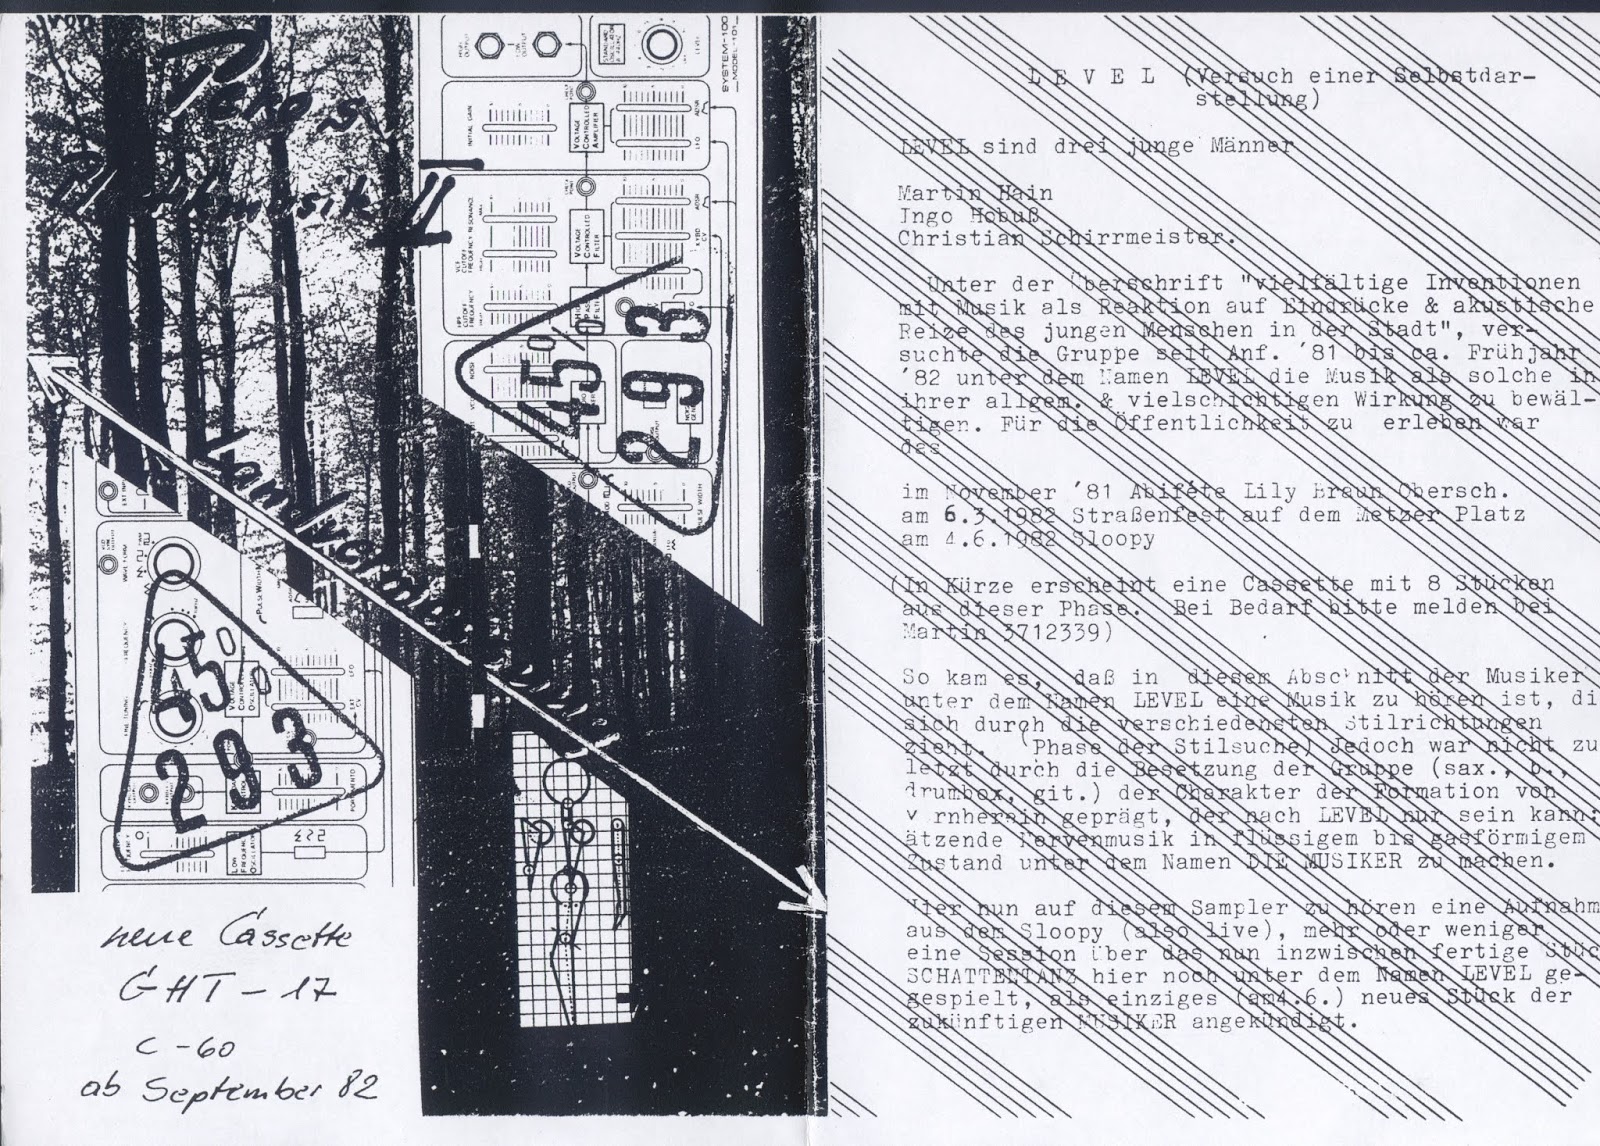 Blechmusik II
SYSTEM-100
MODEL-101
HIGH OUTPUT
LOW OUTPUT
LEVEL
INITIAL GAIN
VOLTAGE CONTROLLED AMPLIFIER
ADSR
LFO
VCF CUTOFF FREQUENCY RESONANCE
VOLTAGE CONTROLLED FILTER
ADSR
KYBD CV
HPF CUTOFF FREQUENCY
NOISE
PULSE WIDTH
45%
293
PULSE WIDTH
FREQUENCY
FINE TUNING
VOLTAGE CONTROLLED OSCILLATOR
LFO
EXT CV
PORTAMENTO
LOW FREQUENCY OSCILLATOR
45%
293
neue Cassette
GHT - 17
C - 60
ab September 82
L E V E L (Versuch einer Selbstdar-
stellung)
LEVEL sind drei junge Männer
Martin Hain
Ingo Hobuß
Christian Schirrmeister.
Unter der Überschrift "vielfältige Inventionen
mit Musik als Reaktion auf Eindrücke & akustische
Reize des jungen Menschen in der Stadt", ver-
suchte die Gruppe seit Anf. '81 bis ca. Frühjahr
'82 unter dem Namen LEVEL die Musik als solche in
ihrer allgem. & vielschichtigen Wirkung zu bewäl-
tigen. Für die Öffentlichkeit zu erleben war
das
im November '81 Abiféte Lily Braun Obersch.
am 6.3.1982 Straßenfest auf dem Metzer Platz
am 4.6.1982 Sloopy
(In Kürze erscheint eine Cassette mit 8 Stücken
aus dieser Phase. Bei Bedarf bitte melden bei
Martin 3712339)
So kam es, daß in diesem Abschnitt der Musiker
unter dem Namen LEVEL eine Musik zu hören ist, di
sich durch die verschiedensten Stilrichtungen
zieht. (Phase der Stilsuche) Jedoch war nicht zu
letzt durch die Besetzung der Gruppe (sax., b.,
drumbox, git.) der Charakter der Formation von
v rnherein geprägt, der nach LEVEL nur sein kann:
ätzende Nervenmusik in flüssigem bis gasförmigem
Zustand unter dem Namen DIE MUSIKER zu machen.
Hier nun auf diesem Sampler zu hören eine Aufnahm
aus dem Sloopy (also live), mehr oder weniger
eine Session über das nun inzwischen fertige Stüc
SCHATTENTANZ hier noch unter dem Namen LEVEL ge-
gespielt, als einziges (am4.6.) neues Stück der
zukünftigen MUSIKER angekündigt.